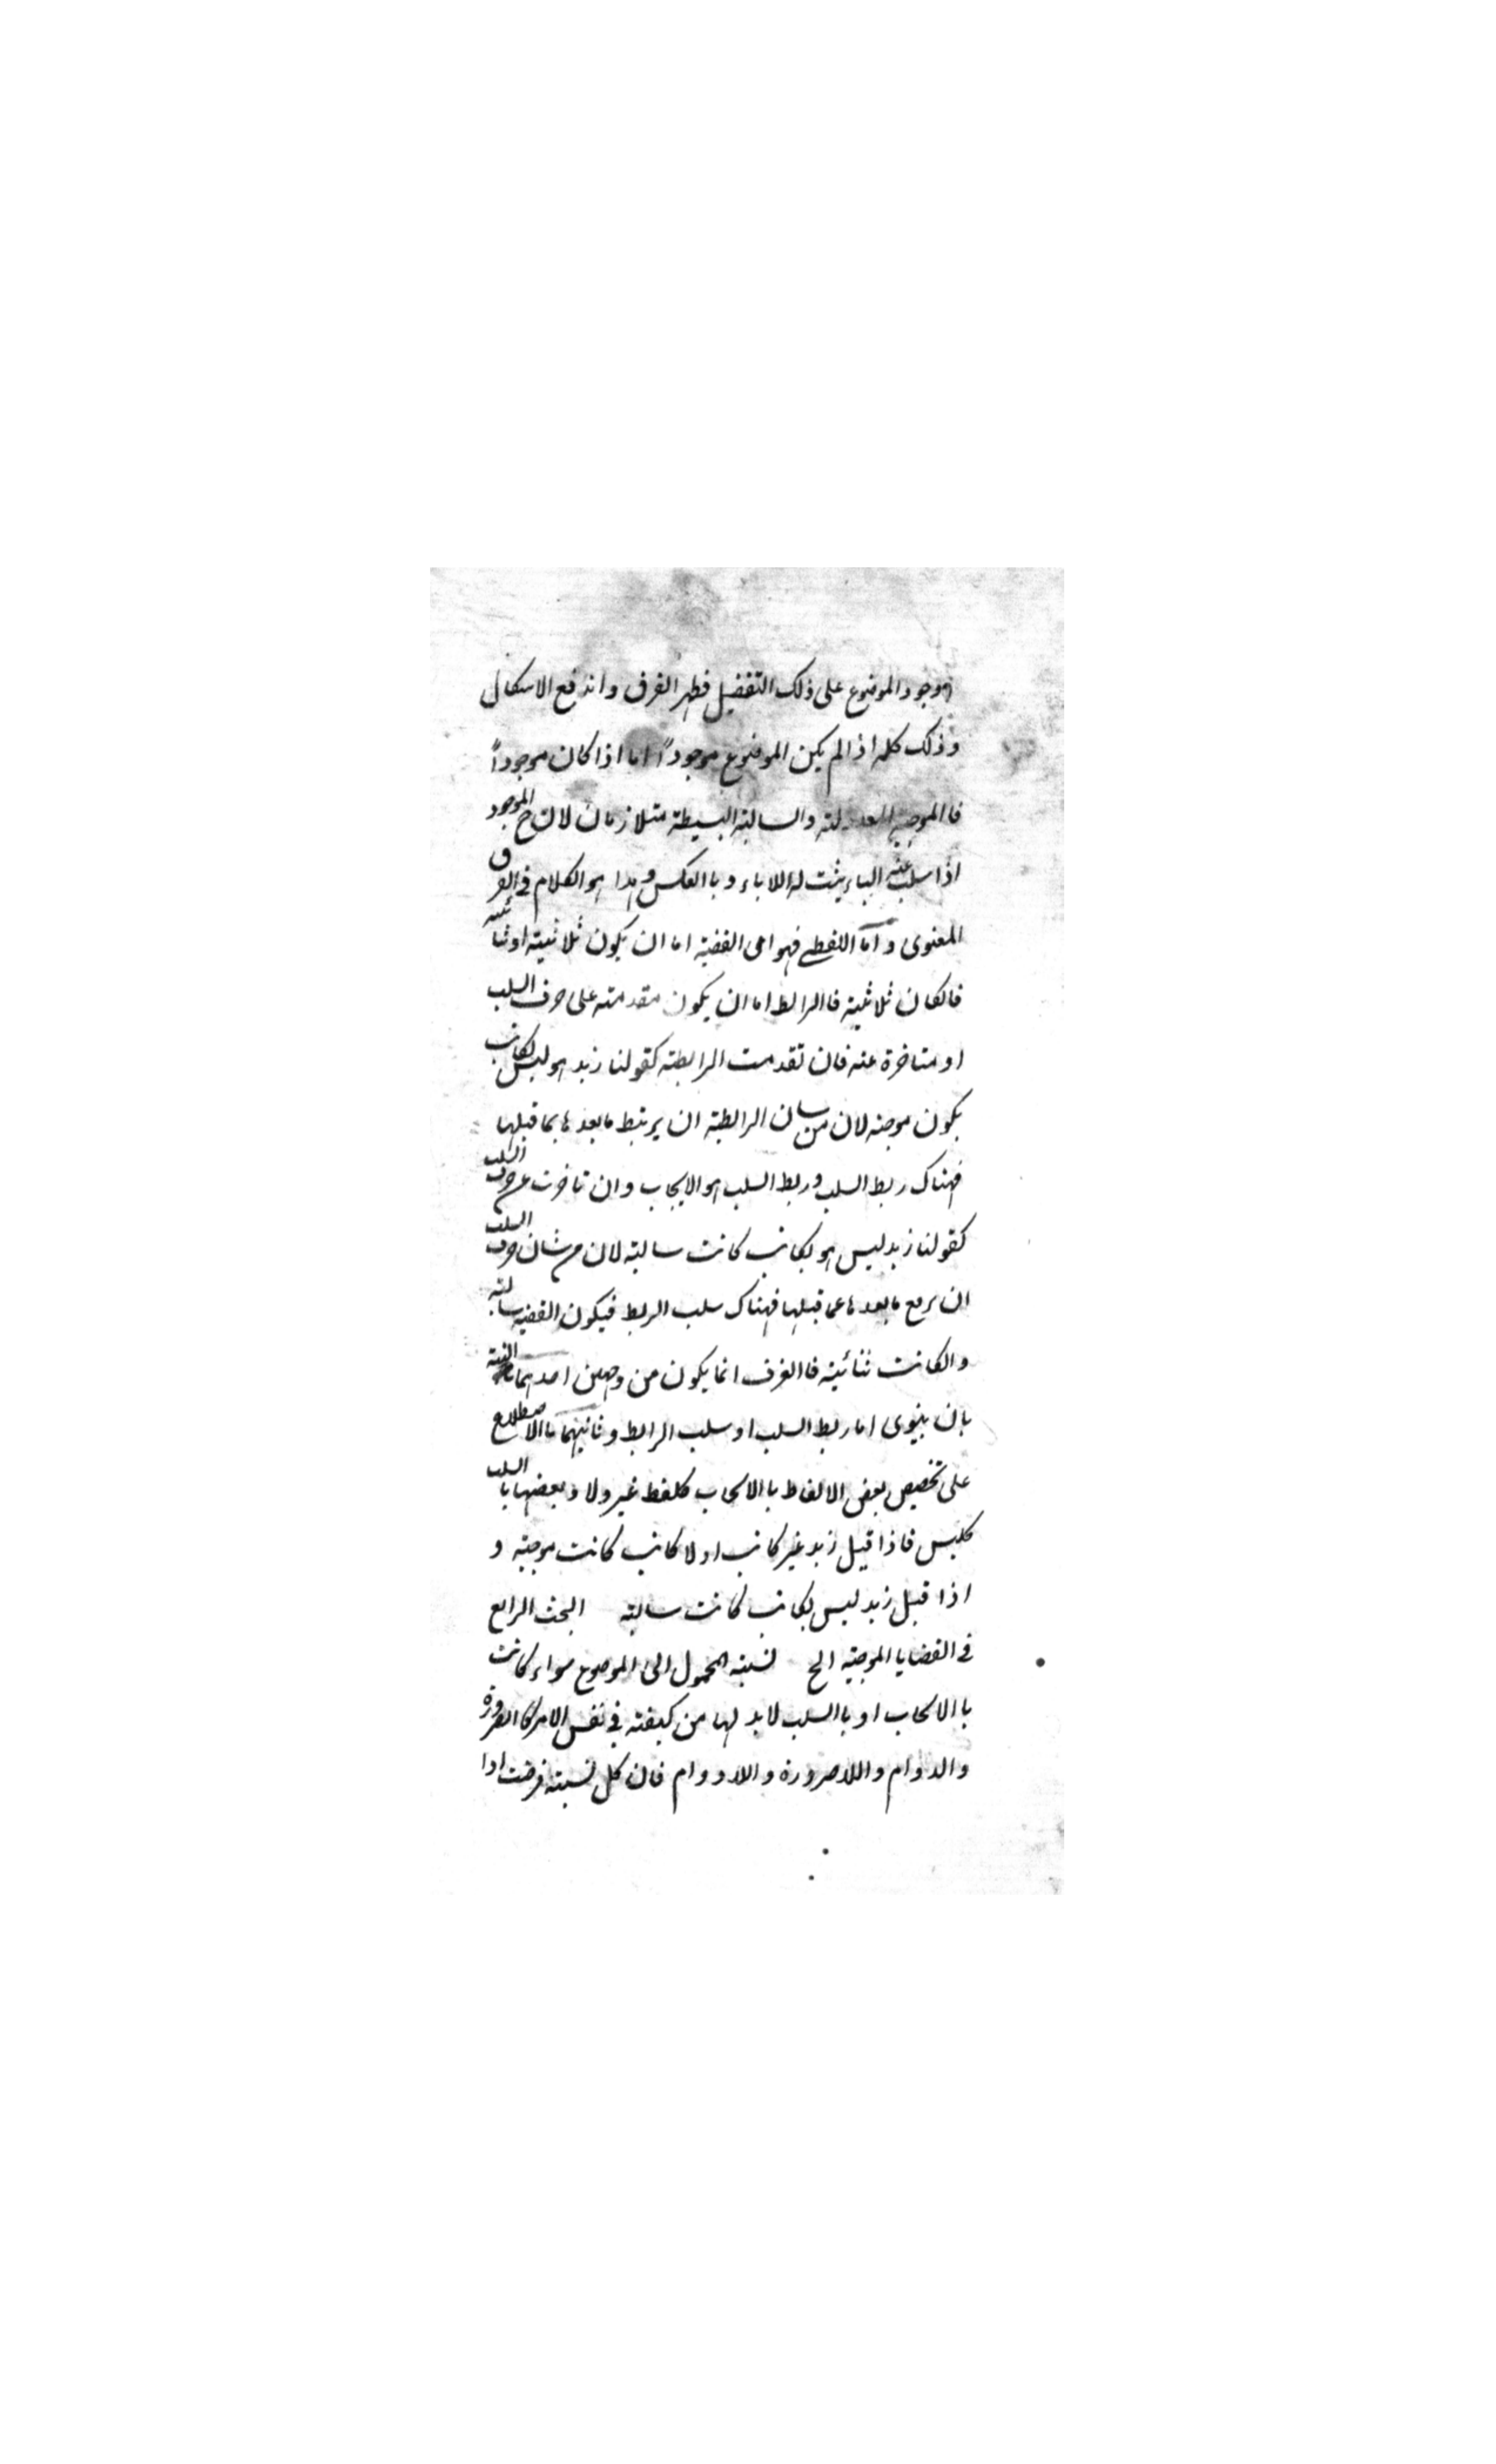 موجود الموضوع على ذلك التفضيل فظهر الفرق واندفع الاشكال
وذلك كله اذا لم يكن الموضوع موجوداً اما اذا كان موجوداً
فالموجبة المعدولة والسالبة البسيطة متلازمان لان ح الموجود
اذا سلب عنه الباء يثبت له اللاباء وباالعكس وهذا هو الكلام فى الفرق
المعنوى واما اللفظى فهو اهى القضية اما ان يكون ثلاثية او ثنائية
فالكان ثلاثية فاالرابط اما ان يكون متقدمة على حرف السلب
او متاخرة عنه فان تقدمت الرابطة كقولنا زيد هو ليس بكاتب
يكون موجبة لان من شان الرابطة ان يرتبط مابعدها بما قبلها
فهناك ربط السلب وربط السلب هو الايجاب وان تاخرت عن حرف السلب
كقولنا زيد ليس هو بكاتب كانت سالبة لان من شان حرف السلب
ان يرفع مابعدها عما قبلها فهناك سلب الربط فيكون القضية سالبة
والكانت ثنائية فاالفرق انما يكون من وجهين احدهما النية
بان ينوى اما ربط السلب او سلب الرابط وثانيهما باالاصطلاح
على تخصيص بعض الالفاظ باالايجاب كلفظ غير ولا وبعضها باالسلب
كليس فاذا قيل زيد غير كاتب او لا كاتب كانت موجبة و
اذا قيل زيد ليس بكاتب كانت سالبة البحث الرابع
فى القضايا الموجبة الخ نسبة المحمول الى الموضوع سواء كانت
باالايجاب او باالسلب لابد لها من كيفية فى نفس الامر كاالضرورة
والدوام واللاضرورة والادوام فان كل نسبة فرضت اذا